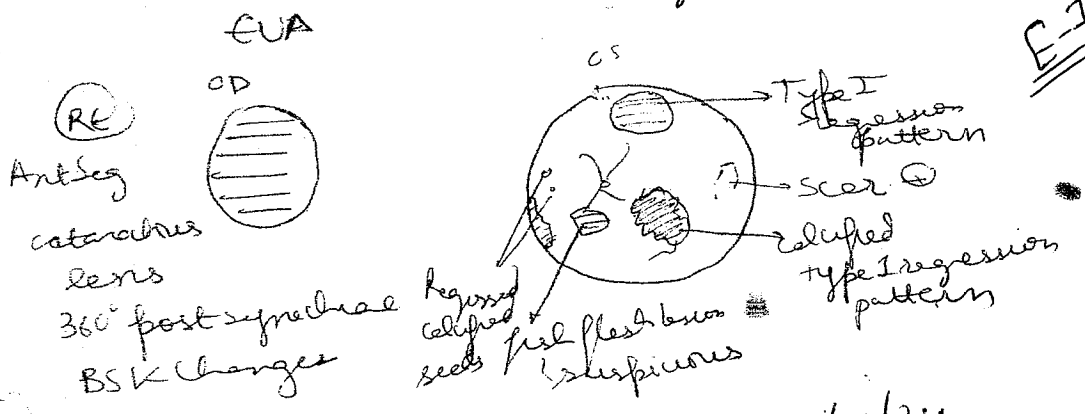 EUA
E-I
RE
OD
OS
AntSeg
cataractous
lens
360° post synechiae
BSK changes
Type I
regression
pattern
scar +
calcified
type I regression
pattern
Regressed
calcified
seeds
fish flesh lesion
suspicious